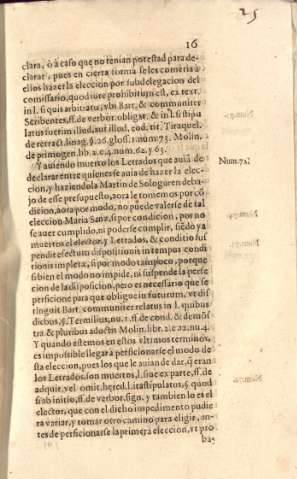 25
16
clara, ò à caso que no tenian potestad para de-
clarar, pues en cierta forma se les cometia à
ellos hazer la eleccion por subdelegacion del
comissario, quod iure prohibitum est, ex text.
in l. si quis arbitratu, vbi Bart. & communiter
Scribentes, ff. de verbor. obligat. & in l. si stipu
latus fuerim illud, aut illud, eod. tit. Tiraquel.
de retract. linag. §. 26. gloss. 1. num. 73. Molin.
de primogen. lib. 2. c. 4. num. 62. y 63.
Y auiendo muerto los Letrados que auiã de
Num. 72.
declarar entre quienes se auia de hazer la elec-
cion, y haziendola Martin de Sologuren deba-
jo de esse presupuesto, aora le tomemos por cõ
dicion, aora por modo, no puede valerse de tal
eleccion Maria Sanz, si por condicion, por no
se auer cumplido, ni poderse cumplir, siẽdo ya
muertos el elector, y Letrados, & conditio sus
pendit effectum dispositionis in tempus condi
tionis impletæ, si por modo tampoco, porque
si bien el modo no impide, ni suspende la perfe
cion de la disposicion, pero es necessario que se
perficione para que obligue in futurum, vt dis
tinguit Bart. communiter relatus in l. quibus
diebus, §. Termilius, nu. 2. ff. de cond. & demõs
tra. & pluribus adoctis Molin. libr. 2. c. 12. nu. 4.
Y quando estemos en estos vltimos terminos,
es impossible llegar à perficionarse el modo de
sta eleccion, pues los que le auian de dar, q̃ eran
los Letrados, son muertos, l. siue ex parte, ff. de
adquir. vel omit. hered. l. ita stipulatus, §. quod
sab initio, ff. de verbor. sign. y tambien lo es el
elector, que con el dicho impedimento pudie
ra variar, y tomar otro camino para eligir, an-
tes de perficionarse la primera eleccion, vt pro
ba-